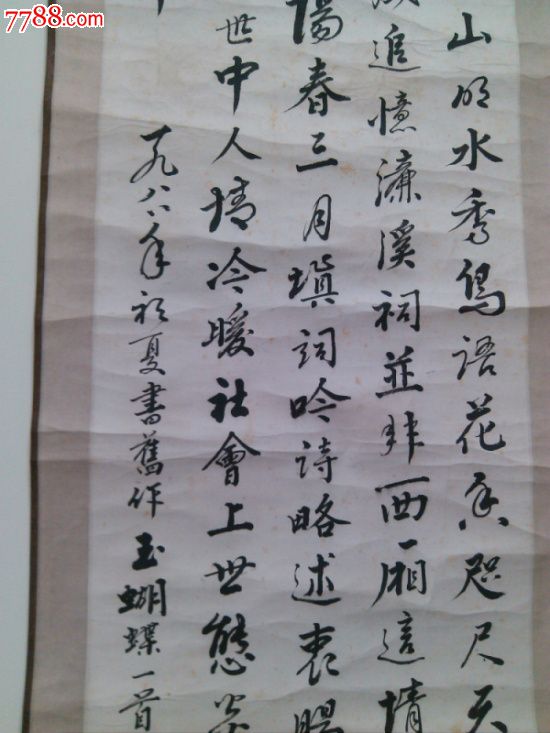 7788.com
山明水秀鸟语花香咫尺天
追憶濂溪祠並非西厢這情
陽春三月填詞吟詩略述衷腸
世中人情冷暖社會上世態炎
一九八八年初夏書舊作玉蝴蝶一首